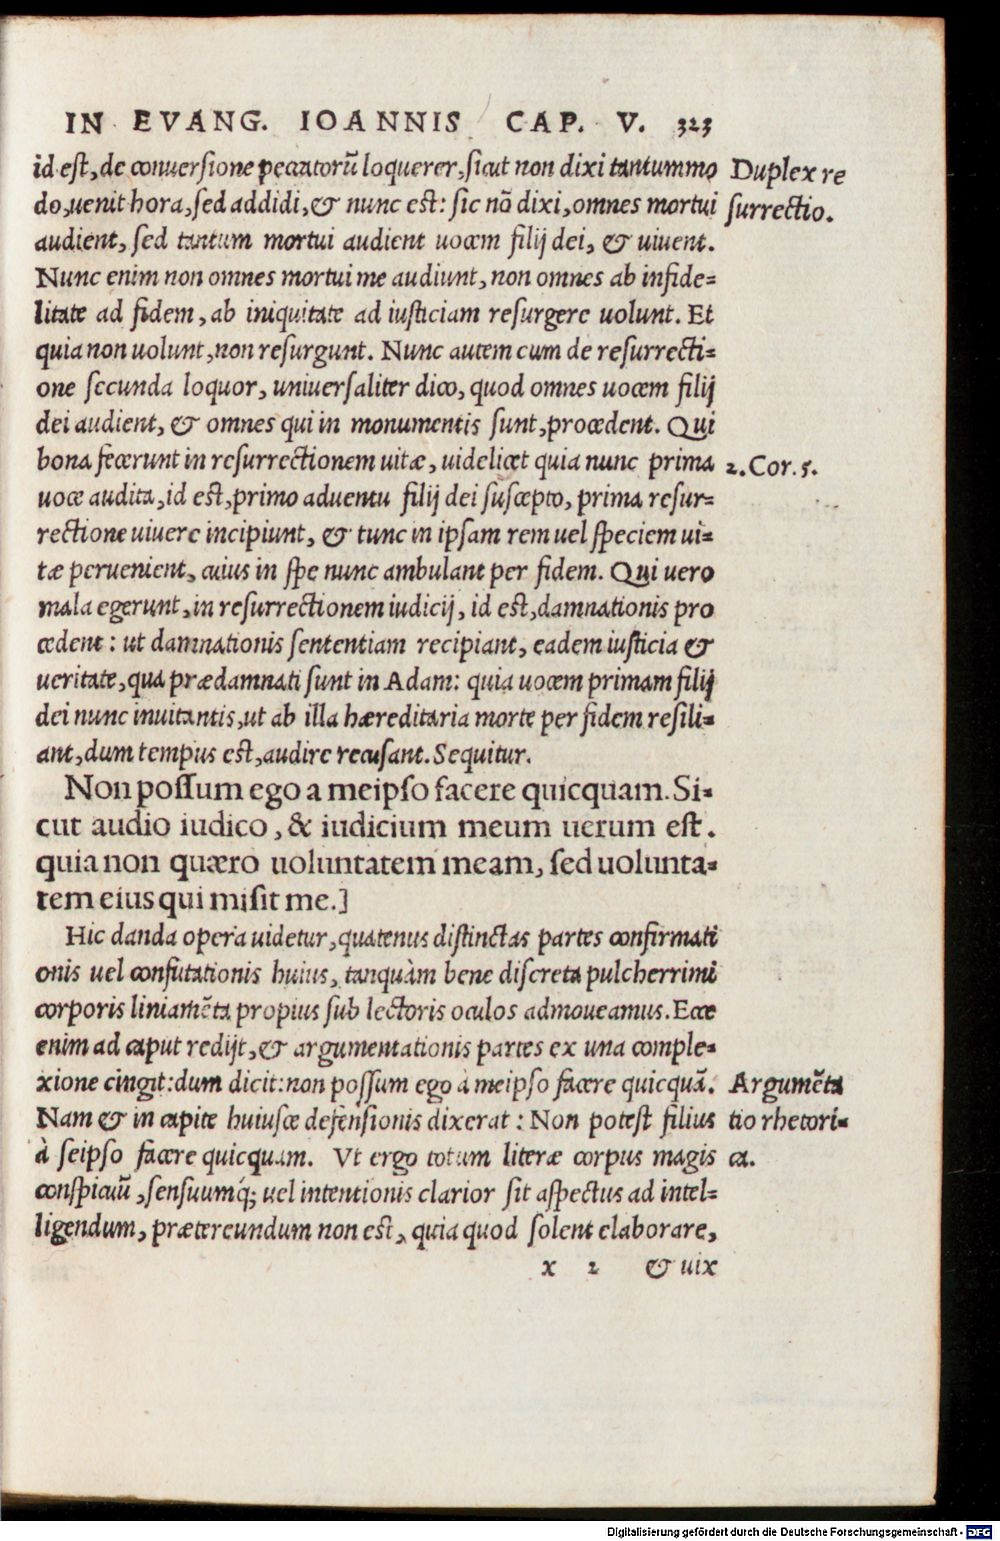 IN EVANG. IOANNIS CAP. V. 323
id est, de conuersione peccatorũ loquerer, sicut non dixi tantummo
do, uenit hora, sed addidi, & nunc est: sic nõ dixi, omnes mortui
audient, sed tantum mortui audient uocem filij dei, & uiuent.
Nunc enim non omnes mortui me audiunt, non omnes ab infide-
litate ad fidem, ab iniquitate ad iusticiam resurgere uolunt. Et
quia non uolunt, non resurgunt. Nunc autem cum de resurrecti-
one secunda loquor, uniuersaliter dico, quod omnes uocem filij
dei audient, & omnes qui in monumentis sunt, procedent. Qui
bona fecerunt in resurrectionem uitæ, uidelicet quia nunc prima
uoce audita, id est, primo aduentu filij dei suscepto, prima resur-
rectione uiuere incipiunt, & tunc in ipsam rem uel speciem ui-
tæ peruenient, cuius in spe nunc ambulant per fidem. Qui uero
mala egerunt, in resurrectionem iudicij, id est, damnationis pro
cedent: ut damnationis sententiam recipiant, eadem iusticia &
ueritate, qua prædamnati sunt in Adam: quia uocem primam filij
dei nunc inuitantis, ut ab illa hæreditaria morte per fidem resili-
ant, dum tempus est, audire recusant. Sequitur.
Non possum ego a meipso facere quicquam. Si-
cut audio iudico, & iudicium meum uerum est.
quia non quæro uoluntatem meam, sed uolunta-
tem eius qui misit me.]
Hic danda opera uidetur, quatenus distinctas partes confirmati
onis uel confutationis huius, tanquàm bene discreta pulcherrimi
corporis liniamẽta propius sub lectoris oculos admoueamus. Ecce
enim ad caput redijt, & argumentationis partes ex una comple-
xione cingit: dum dicit: non possum ego à meipso facere quicquã.
Nam & in capite huiusce defensionis dixerat: Non potest filius
à seipso facere quicquam. Vt ergo totum literæ corpus magis
conspicuũ, sensuumq́; uel intentionis clarior sit aspectus ad intel-
ligendum, prætereundum non est, quia quod solent elaborare,
x 2 & uix
Duplex re
surrectio.
2. Cor. 5.
Argumẽta
tio rhetori-
ca.
Digitalisierung gefördert durch die Deutsche Forschungsgemeinschaft - DFG